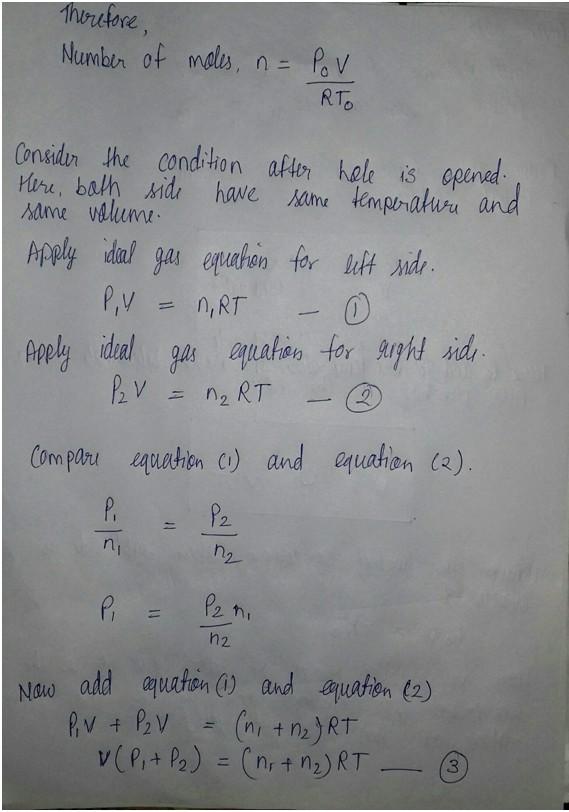 Therefore,
Number of moles, n = P₀V / RT₀
Consider the condition after hole is opened.
Here, both side have same temperature and
same volume.
Apply ideal gas equation for left side.
P₁V = n₁RT — ①
Apply ideal gas equation for right side.
P₂V = n₂RT — ②
Compare equation (1) and equation (2).
P₁/n₁ = P₂/n₂
P₁ = P₂n₁/n₂
Now add equation (1) and equation (2)
P₁V + P₂V = (n₁ + n₂)RT
V(P₁ + P₂) = (n₁ + n₂)RT — ③